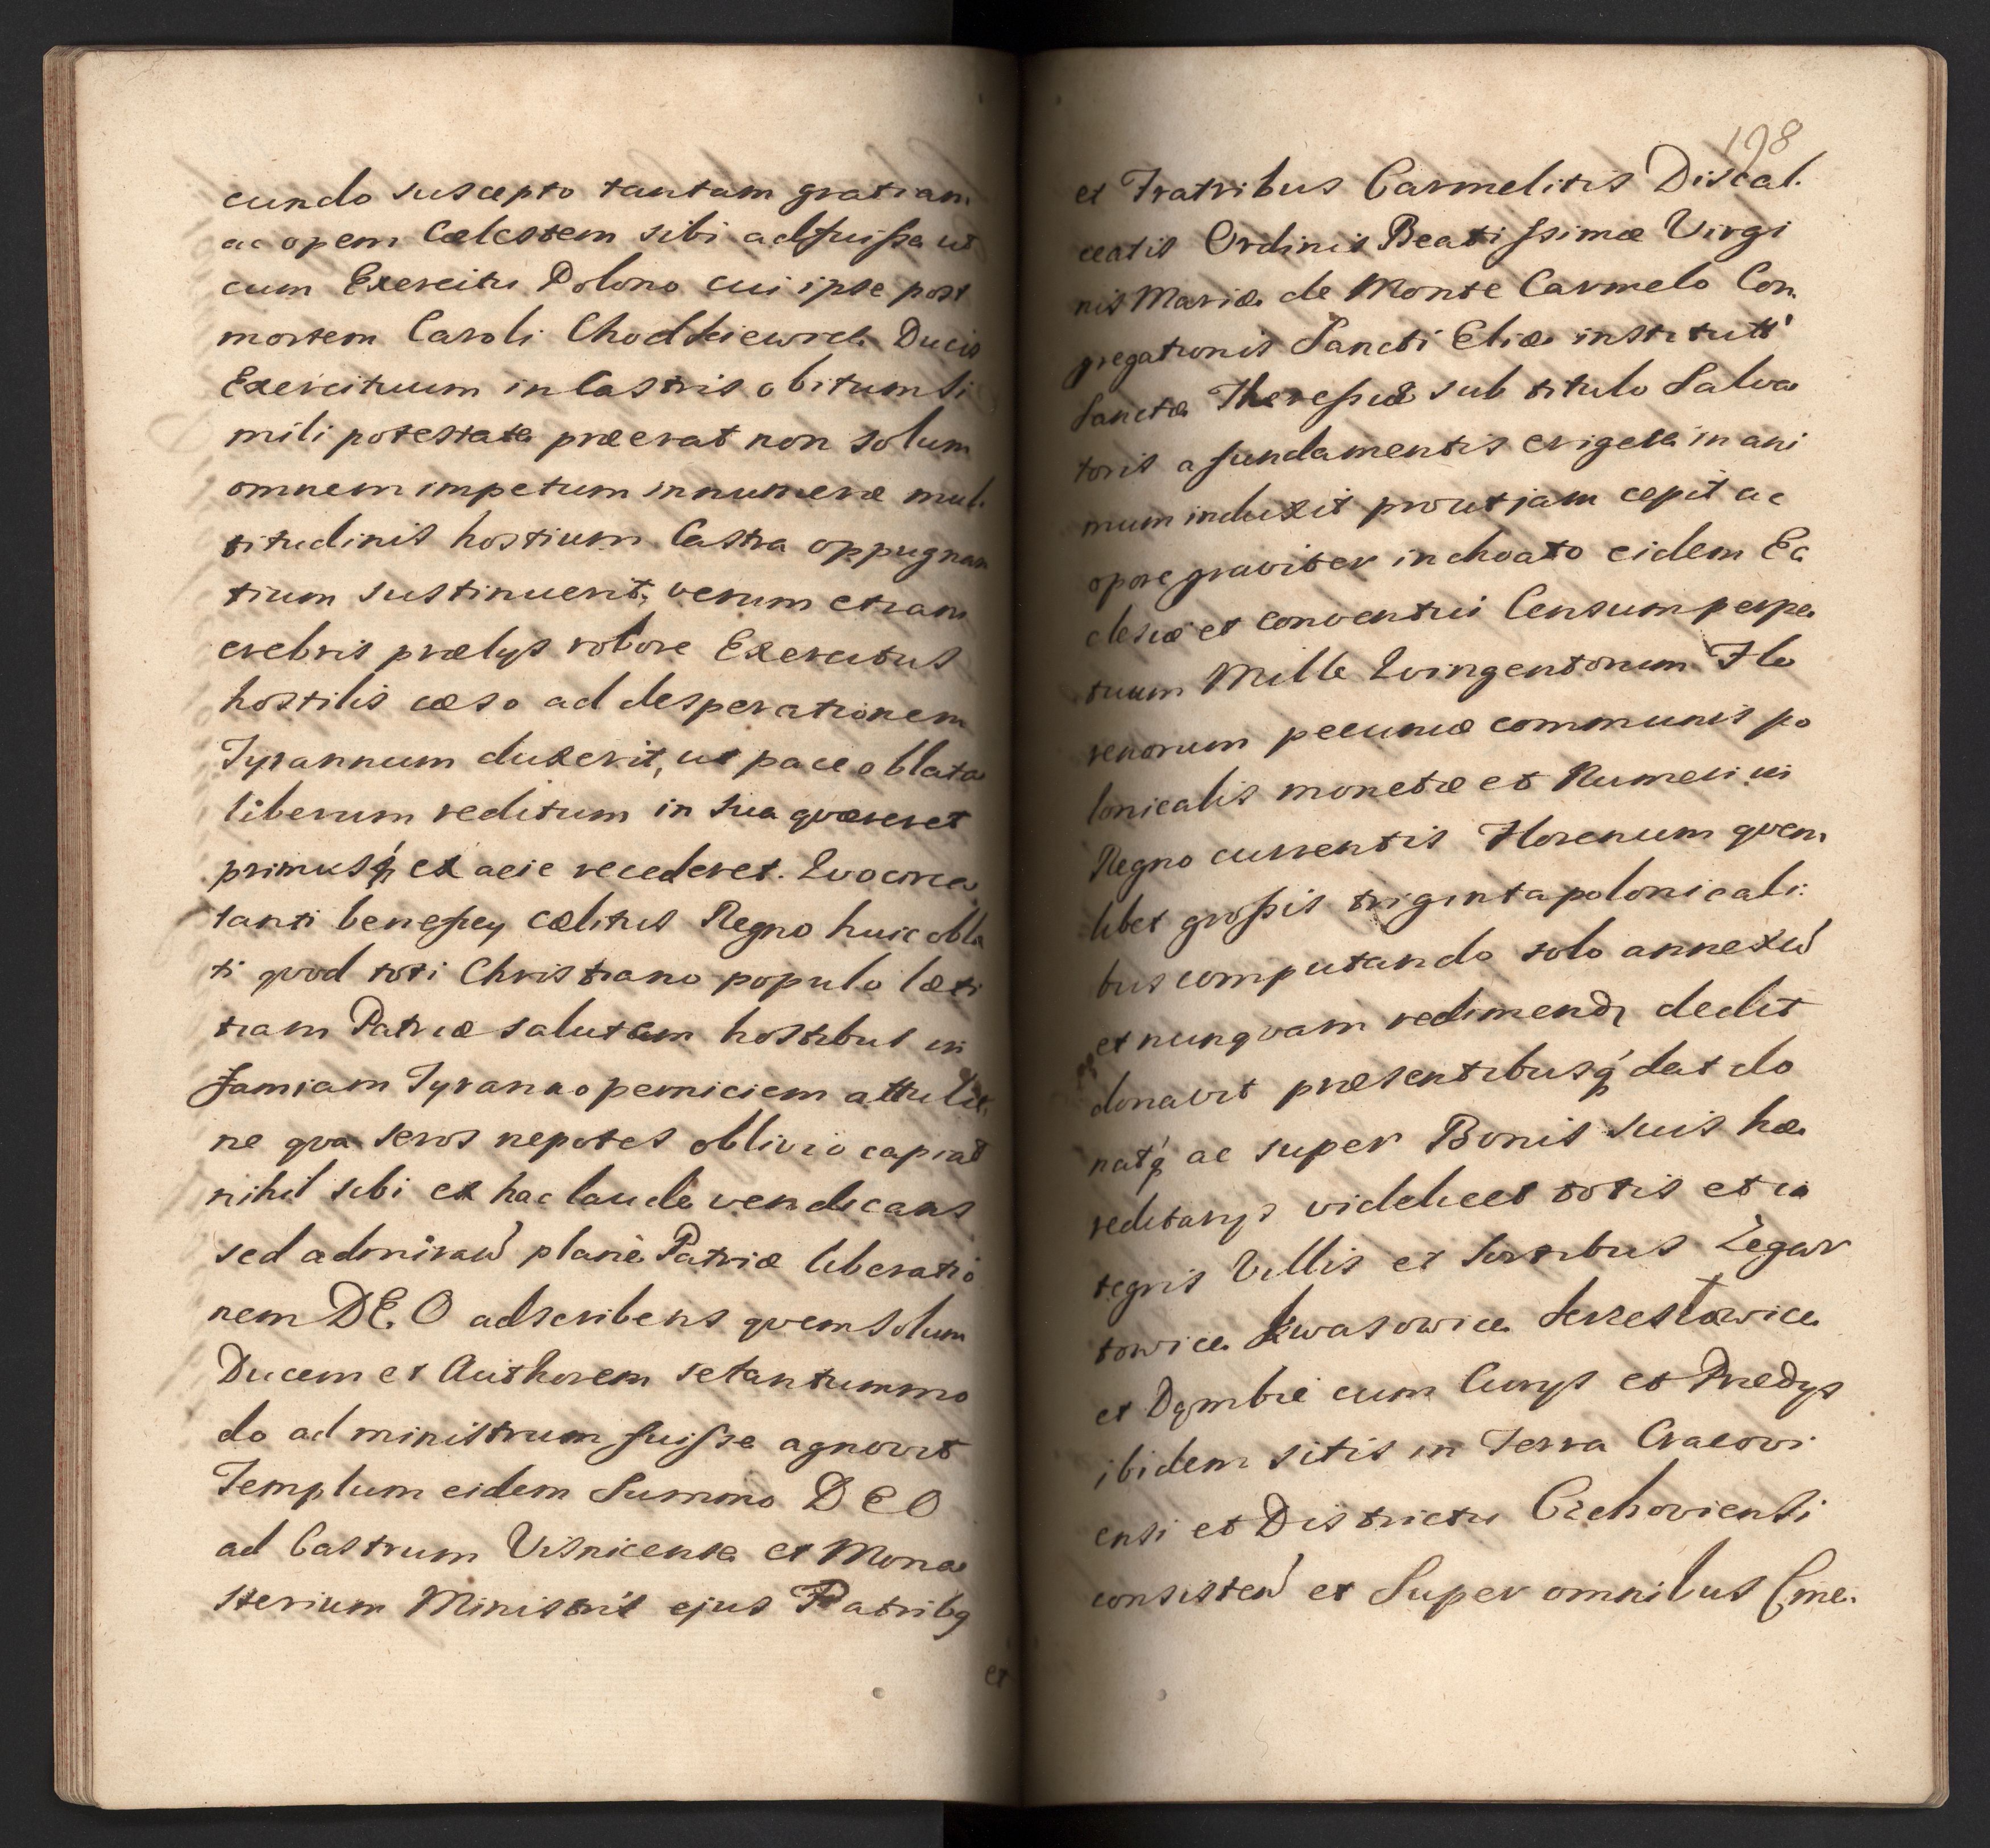 cundo suscepto tantam gratiam
ac opem Cælestem sibi adfuisse ut
cum Exercitu Polono cui ipse post
mortem Caroli Chodkiewicz Ducis
Exercituum in Castris obitum si
mili potestate præerat non solum
omnem impetum innumeræ mul.
titudinis hostium Castra oppugnan
tium sustinuerit, verum etiam
crebris prælys robore Exercitus
hostilis cæso ad desperationem
Tyrannum duxerit, ut pace oblata
liberum reditum in sua qværeret
primusq́ ex acie recederet. Qvocirca
tanti beneficy cælitus Regno huic obla
ti qvod toti Christiano populo læti
tiam Patriæ salutem hostibus in
famiam Tyranno perniciem attulit,
ne qva seros nepotes oblivio capiat
nihil sibi ex hac laude vendicans
sed admiran̄ planè Patriæ liberatio
nem DEO adscribens qvem solum
Ducem et Authorem se tantummo
do administrum fuisse agnovit
Templum eidem Summo DEO
ad Castrum Visnicense et Mona
sterium Ministris ejus Patribq
et
198
et Fratribus Carmelitis Discal.
ceatis Ordinis Beatissimæ Virgi
nis Mariæ de Monte Carmelo Con.
gregationis Sancti Eliæ institutt'
Sanctæ Theresiæ sub titulo Salva
toris a fundamentis erigere in ani
mum induxit prout jam cepit ac
opere graviter inchoato eidem Ec
clesiæ et conventui Censum perpe
tuum Mille Qvingentorum Flo
renorum pecuniæ communis po
lonicalis monetæ et Numeri in
Regno currentis Florenum qvem
libet grossis triginta polonicali:
bus computando solo annexū
et nunqvam redimendq dedit
donavit præsentibusq́ dat do
natq́ ac super Bonis suis hæ
reditarys videlicet totis et in
tegris Villis et Sortibus Łegar
towice Kwasowice Serzesławice
et Dąmbie cum Curys et Prædys
ibidem sitis in Terra Cracovi
ensi et Districtu Czchoviensi
consisten̄ et Super omnibus Cme.